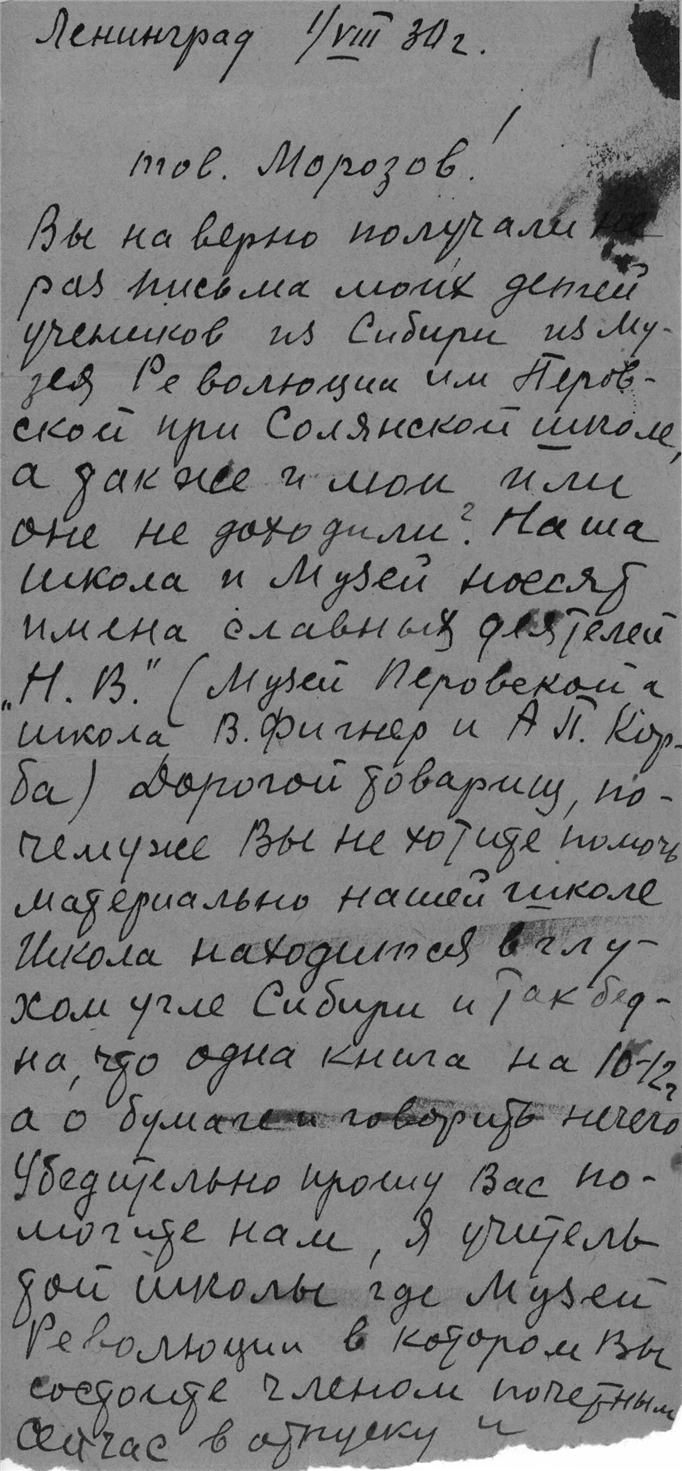 Ленинград 1/VIII 30 г.
тов. Морозов!
Вы на верно получали не
раз письма моих детей
учеников из Сибири из Му-
зея Революции им Перов-
ской при Солянской школе,
а также и мои или
оне не доходили? Наша
школа и Музей носят
имена славных деятелей
„Н. В." (Музей Перовской а
школа В. Фигнер и А П. Кор-
ба) Дорогой товарищ, по-
чемуже Вы не хотите помочь
материально нашей школе
Школа находится в глу-
хом угле Сибири и так бед-
на, что одна книга на 10-12,
а о бумаге и говорить нечего
Убедительно прошу Вас по-
могите нам, я учитель
той школы где Музей
Революции в котором Вы
состоите членом почетным
Сейчас в отпуску и